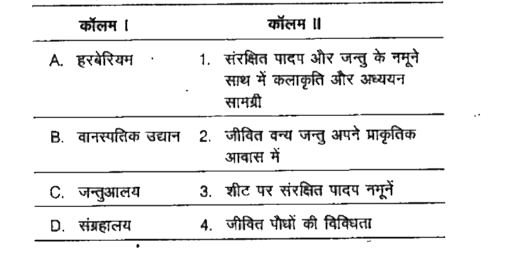 कॉलम I कॉलम II
A. हरबेरियम 1. संरक्षित पादप और जन्तु के नमूने
साथ में कलाकृति और अध्ययन
सामग्री
B. वानस्पतिक उद्यान 2. जीवित वन्य जन्तु अपने प्राकृतिक
आवास में
C. जन्तुआलय 3. शीट पर संरक्षित पादप नमूनें
D. संग्रहालय 4. जीवित पौधों की विविधता